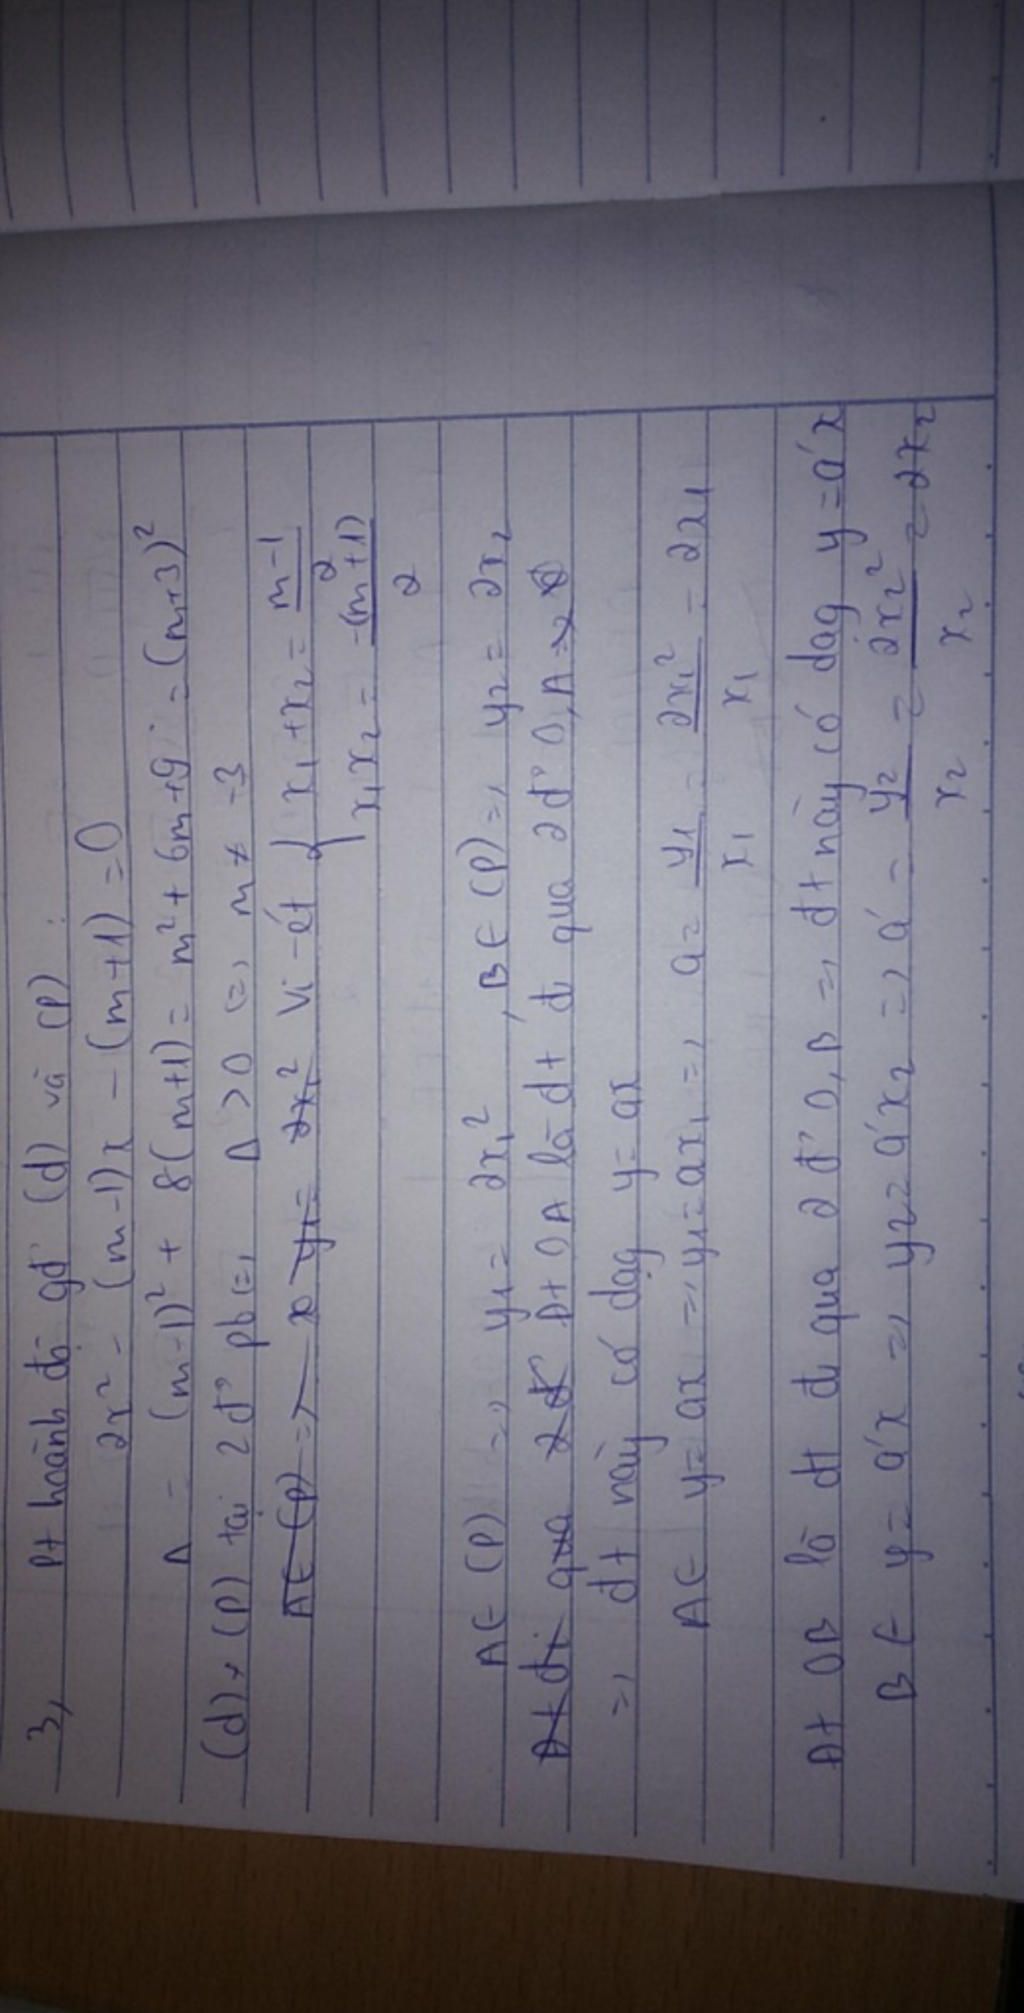 3, Pt hoành độ gđ' (d) và (P) :
2x² - (m-1)x - (m+1) = 0
Δ = (m-1)² + 8(m+1) = m² + 6m + 9 = (m+3)²
(d) x (P) tại 2 đ' pb (=) Δ > 0 (=) m ≠ -3
A ∈ (P) =) y₁ = 2x₁² Vi-ét { x₁ + x₂ = (m-1)/2
x₁x₂ = -(m+1)/2
A ∈ (P) =) y₁ = 2x₁² , B ∈ (P) =) y₂ = 2x₂
Pt đi qua 2 đ' Pt OA là đt đi qua 2 đ' O, A
=) đt này có dạg y = ax
A ∈ y = ax =) y₁ = ax₁ =) a = y₁/x₁ = 2x₁²/x₁ = 2x₁
Pt OB là đt đi qua 2 đ' O, B =) đt này có dạg y = a'x
B ∈ y = a'x =) y₂ = a'x₂ =) a' = y₂/x₂ = 2x₂²/x₂ = 2x₂